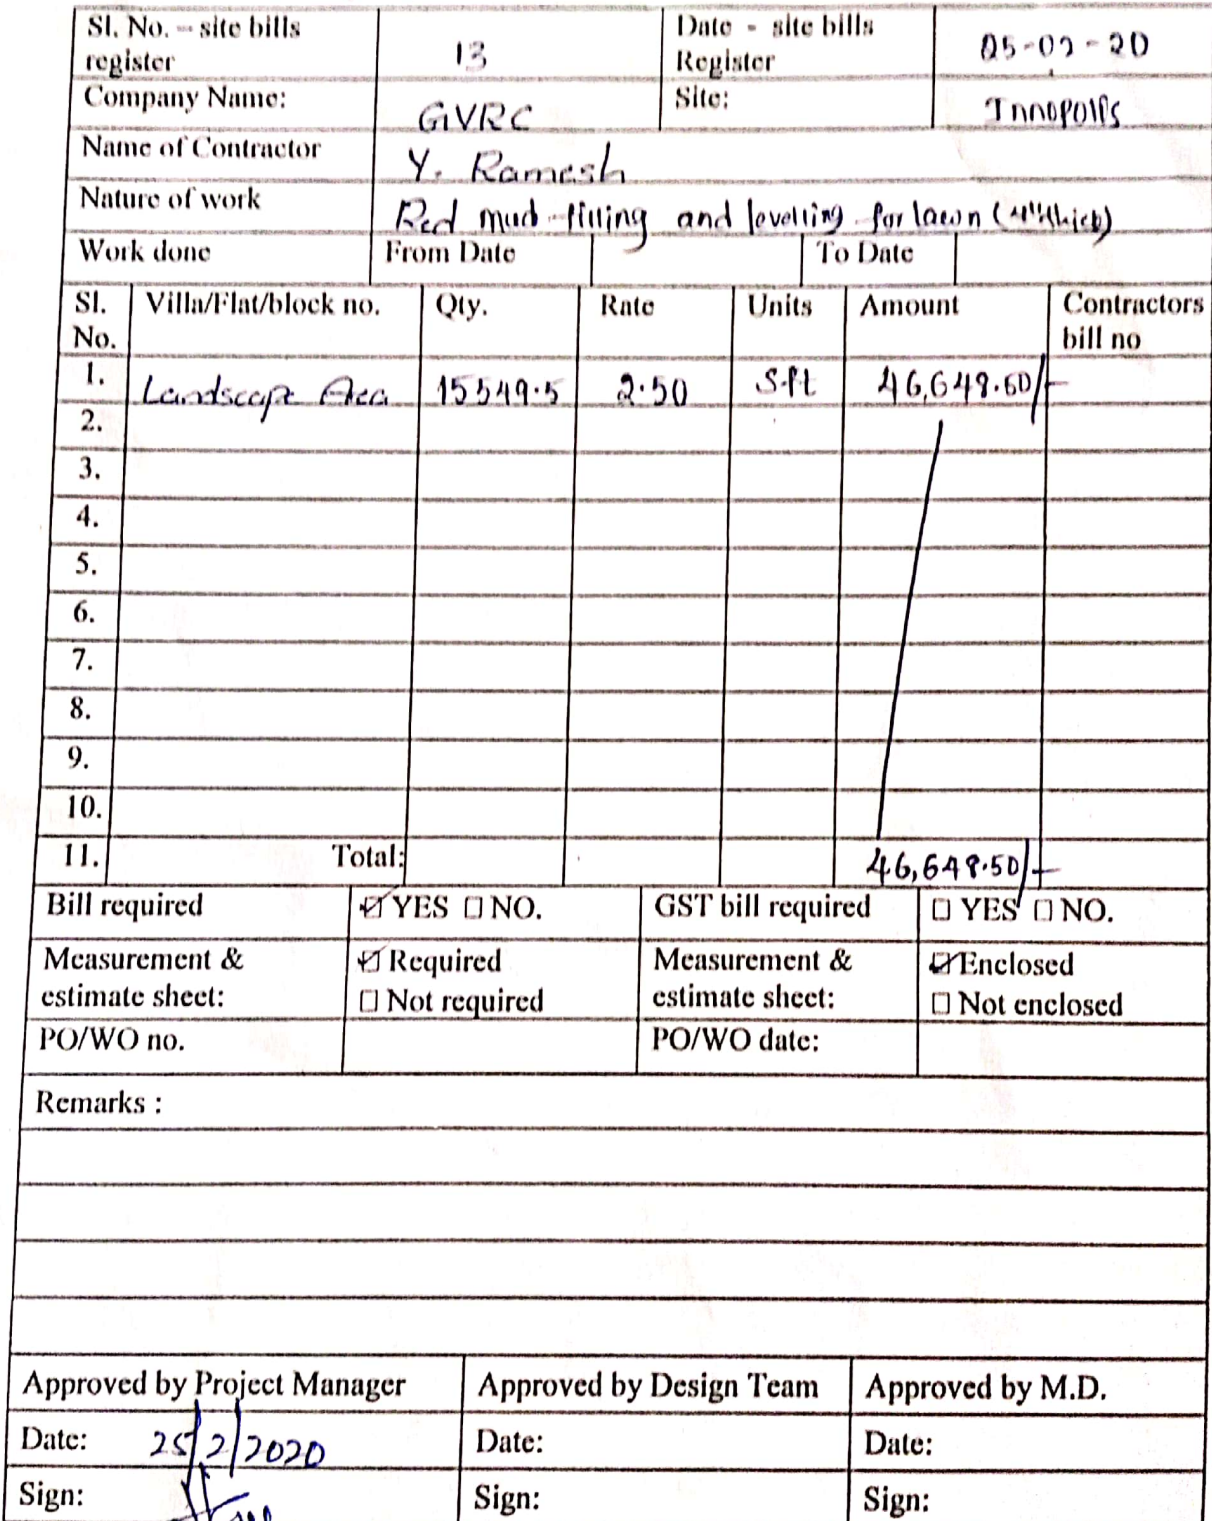 Sl. No. – site bills register 13 Date - site bills Register 25-02-20
Company Name: GVRC Site: Innopolis
Name of Contractor Y. Ramesh
Nature of work Red mud filling and levelling for lawn (4" thick)
Work done From Date To Date
Sl. No. Villa/Flat/block no. Qty. Rate Units Amount Contractors bill no
1. Landscape Area 15549.5 2.50 Sft 46,648.50/-
2.
3.
4.
5.
6.
7.
8.
9.
10.
11. Total: 46,648.50/-
Bill required ☑ YES ☐ NO. GST bill required ☐ YES ☐ NO.
Measurement & estimate sheet: ☑ Required ☐ Not required Measurement & estimate sheet: ☑ Enclosed ☐ Not enclosed
PO/WO no. PO/WO date:
Remarks :
Approved by Project Manager Approved by Design Team Approved by M.D.
Date: 25/2/2020 Date: Date:
Sign: Sign: Sign: